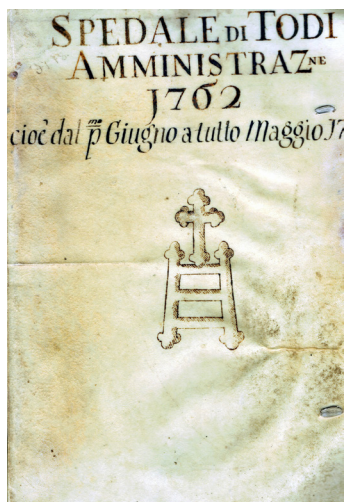 SPEDALE DI TODI
AMMINISTRAZNE
1762
cioè dal pmo Giugno a tutto Maggio 17